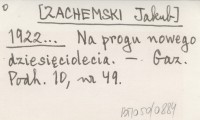 [ZACHEMSKI Jakub]
1922... Na progu nowego
dziesięciolecia. — Gaz.
Podh. 10, nr 49.